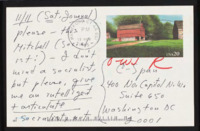 11/11 (Sat. Journal)
please - this
Mitchell (Social-
ist!) - I don't
mind a socialist,
but please, give
us an intelligent
+ articulate
C-Span
400 No Capitol St. NW
Suite 650
Washington DC
20001